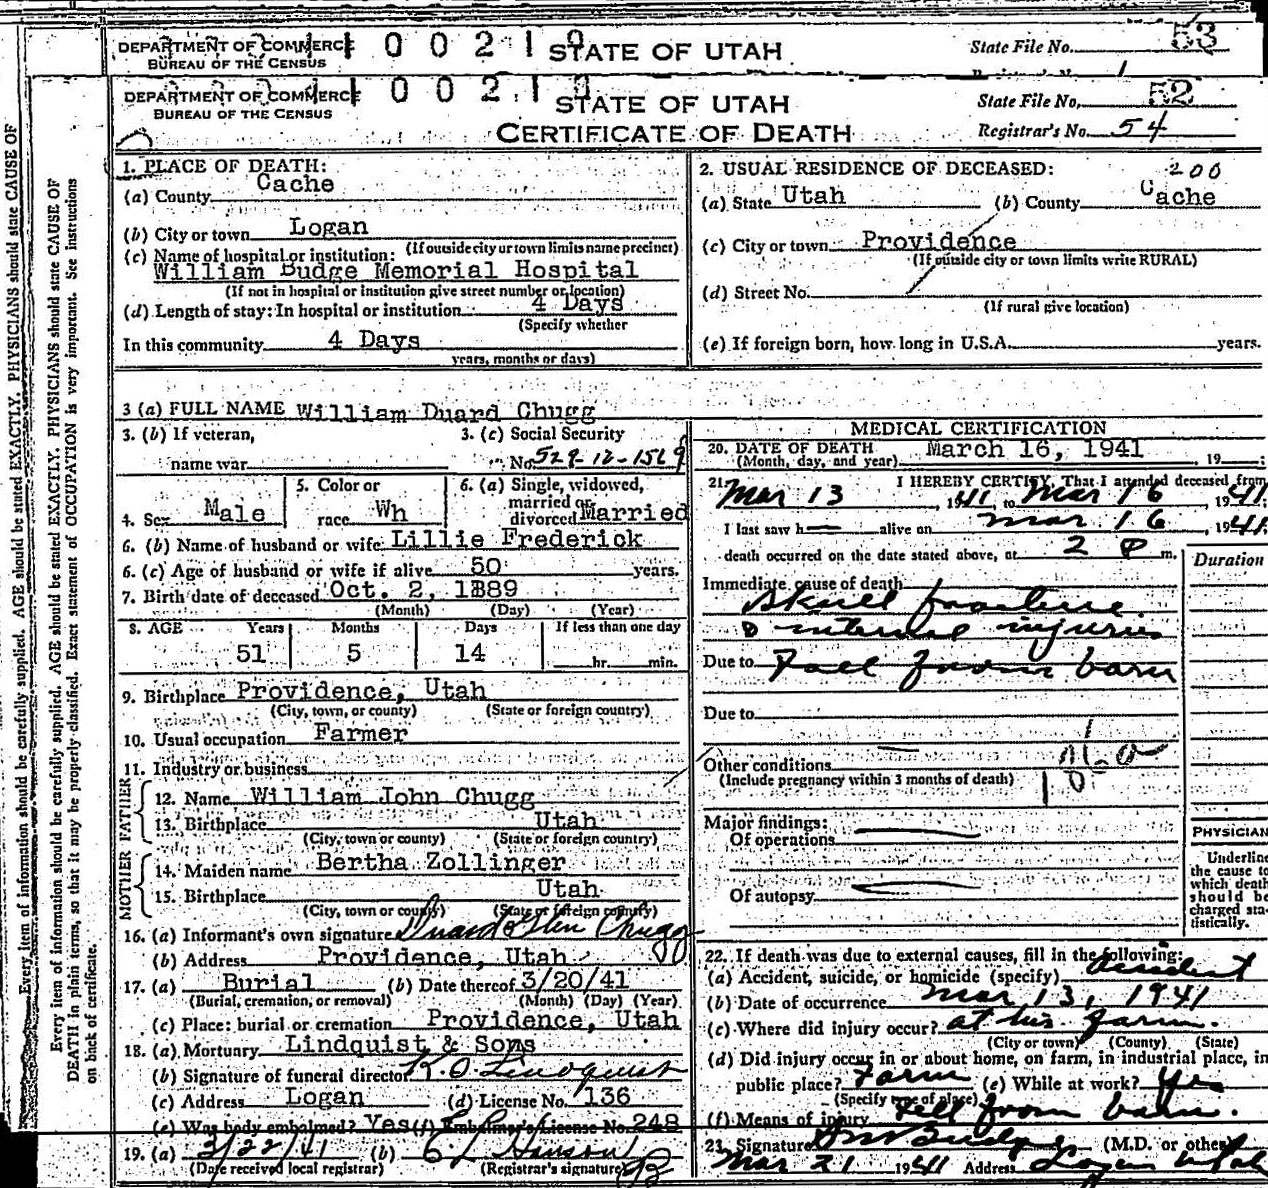 DEPARTMENT OF COMMERCE
BUREAU OF THE CENSUS
STATE OF UTAH
State File No. 53
DEPARTMENT OF COMMERCE
BUREAU OF THE CENSUS
STATE OF UTAH
CERTIFICATE OF DEATH
State File No. 52
Registrar's No. 54
Every item of information should be carefully supplied. AGE should be stated EXACTLY. PHYSICIANS should state CAUSE OF
Every item of information should be carefully supplied. AGE should be stated EXACTLY. PHYSICIANS should state CAUSE OF
DEATH in plain terms, so that it may be properly classified. Exact statement of OCCUPATION is very important. See instructions
on back of certificate.
1. PLACE OF DEATH:
(a) County Cache
(b) City or town Logan
(If outside city or town limits name precinct)
(c) Name of hospital or institution:
William Budge Memorial Hospital
(If not in hospital or institution give street number or location)
(d) Length of stay: In hospital or institution 4 Days
(Specify whether
In this community 4 Days
years, months or days)
2. USUAL RESIDENCE OF DECEASED: 200
(a) State Utah (b) County Cache
(c) City or town Providence
(If outside city or town limits write RURAL)
(d) Street No.
(If rural give location)
(e) If foreign born, how long in U.S.A. years.
3 (a) FULL NAME William Duard Chugg
3. (b) If veteran,
name war
3. (c) Social Security
No. 529-12-1569
4. Sex Male
5. Color or
race Wh
6. (a) Single, widowed,
married or
divorced Married
6. (b) Name of husband or wife Lillie Frederick
6. (c) Age of husband or wife if alive 50 years.
7. Birth date of deceased Oct. 2, 1889
(Month) (Day) (Year)
8. AGE Years Months Days If less than one day
51 5 14 hr. min.
9. Birthplace Providence, Utah
(City, town, or county) (State or foreign country)
10. Usual occupation Farmer
11. Industry or business
FATHER
12. Name William John Chugg
13. Birthplace Utah
(City, town or county) (State or foreign country)
MOTHER
14. Maiden name Bertha Zollinger
15. Birthplace Utah
(City, town or county) (State or foreign country)
16. (a) Informant's own signature Duard Glen Chugg
(b) Address Providence, Utah
17. (a) Burial (b) Date thereof 3/20/41
(Burial, cremation, or removal) (Month) (Day) (Year)
(c) Place: burial or cremation Providence, Utah
18. (a) Mortuary Lindquist & Sons
(b) Signature of funeral director K.O. Lindquist
(c) Address Logan (d) License No. 136
(e) Was body embalmed? Yes (f) Embalmer's License No. 248
19. (a) 3/22/41 (b) C L Hanson
(Date received local registrar) (Registrar's signature)
MEDICAL CERTIFICATION
20. DATE OF DEATH March 16, 1941, 19
(Month, day, and year)
21. I HEREBY CERTIFY, That I attended deceased from
Mar 13, 1941, to Mar 16 1941
I last saw h alive on Mar 16, 1941
death occurred on the date stated above, at 2 P m.
Duration
Immediate cause of death
Skull fracture
& internal injuries
Due to Fall from barn
Due to
Other conditions
(Include pregnancy within 3 months of death)
Major findings:
Of operations
Of autopsy
PHYSICIAN
Underline
the cause to
which death
should be
charged sta-
tistically.
22. If death was due to external causes, fill in the following:
(a) Accident, suicide, or homicide (specify) Accident
(b) Date of occurrence Mar 13, 1941
(c) Where did injury occur? at his farm.
(City or town) (County) (State)
(d) Did injury occur in or about home, on farm, in industrial place, in
public place? Farm (e) While at work? Yes
(Specify type of place)
(f) Means of injury Fell from barn.
23. Signature Budge (M.D. or other)
Mar 21 1941 Address Logan Utah